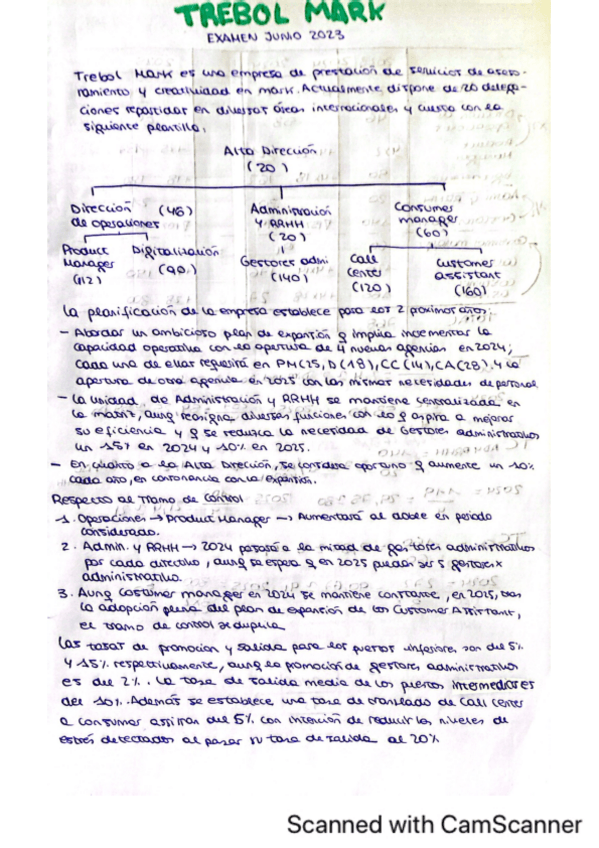 TREBOL MARK
EXAMEN JUNIO 2023
Trebol Mark es una empresa de prestación de servicios de aseso-
ramiento y creatividad en mark. Actualmente dispone de 20 delega-
ciones repartidas en diversas áreas internacionales y cuenta con la
siguiente plantilla:
Alta Dirección
(20)
Dirección (46)
de operaciones
Administración
Y RRHH
(20)
Consumer
manager
(60)
Product
Manager
(112)
Digitalización
(90)
Gestores admi
(140)
Call
center
(120)
Customer
assistant
(160)
La planificación de la empresa establece para los 2 proximos años:
- Abordar un ambicioso plan de expansión q implica incrementar la
capacidad operativa con la apertura de 4 nuevas agencias en 2024;
cada una de ellas requerirá en PM(25), D(18), CC(14), CA(28), y la
apertura de otra agencia en 2025 con las mismas necesidades de personal.
- La unidad de Administración y RRHH se mantiene centralizada en
la matriz, aunq reasigna diversas funciones con lo q aspira a mejorar
su eficiencia y q se reduzca la necesidad de Gestores administrativos
un 15% en 2024 y 10% en 2025.
- En cuanto a la Alta Dirección, se considera oportuno q aumente un 10%
cada año, en consonancia con la expansión.
Respecto al tramo de control
1. Operaciones → Product Manager → Aumentará al doble en periodo
considerado.
2. Admin. y RRHH → 2024 pasará a la mitad de gestores administrativos
por cada directivo, aunq se espera q en 2025 puedan ser 5 gestores x
administrativo.
3. Aunq Costumer manager en 2024 se mantiene constante, en 2025, tras
la adopción plena del plan de expansión de los Customer Assistant,
el tramo de control se duplica
Las tasas de promocion y salida para los puestos inferiores son del 5%
y 15% respectivamente, aunq la promoción de gestores administrativos
es del 2%. La tasa de salida media de los puestos intermedios es
del 10%. Además se establece una tasa de traslado de Call center
a consumer assistan del 5% con intención de reducir los niveles de
estrés detectados al pasar su tasa de salida al 20%
Scanned with CamScanner